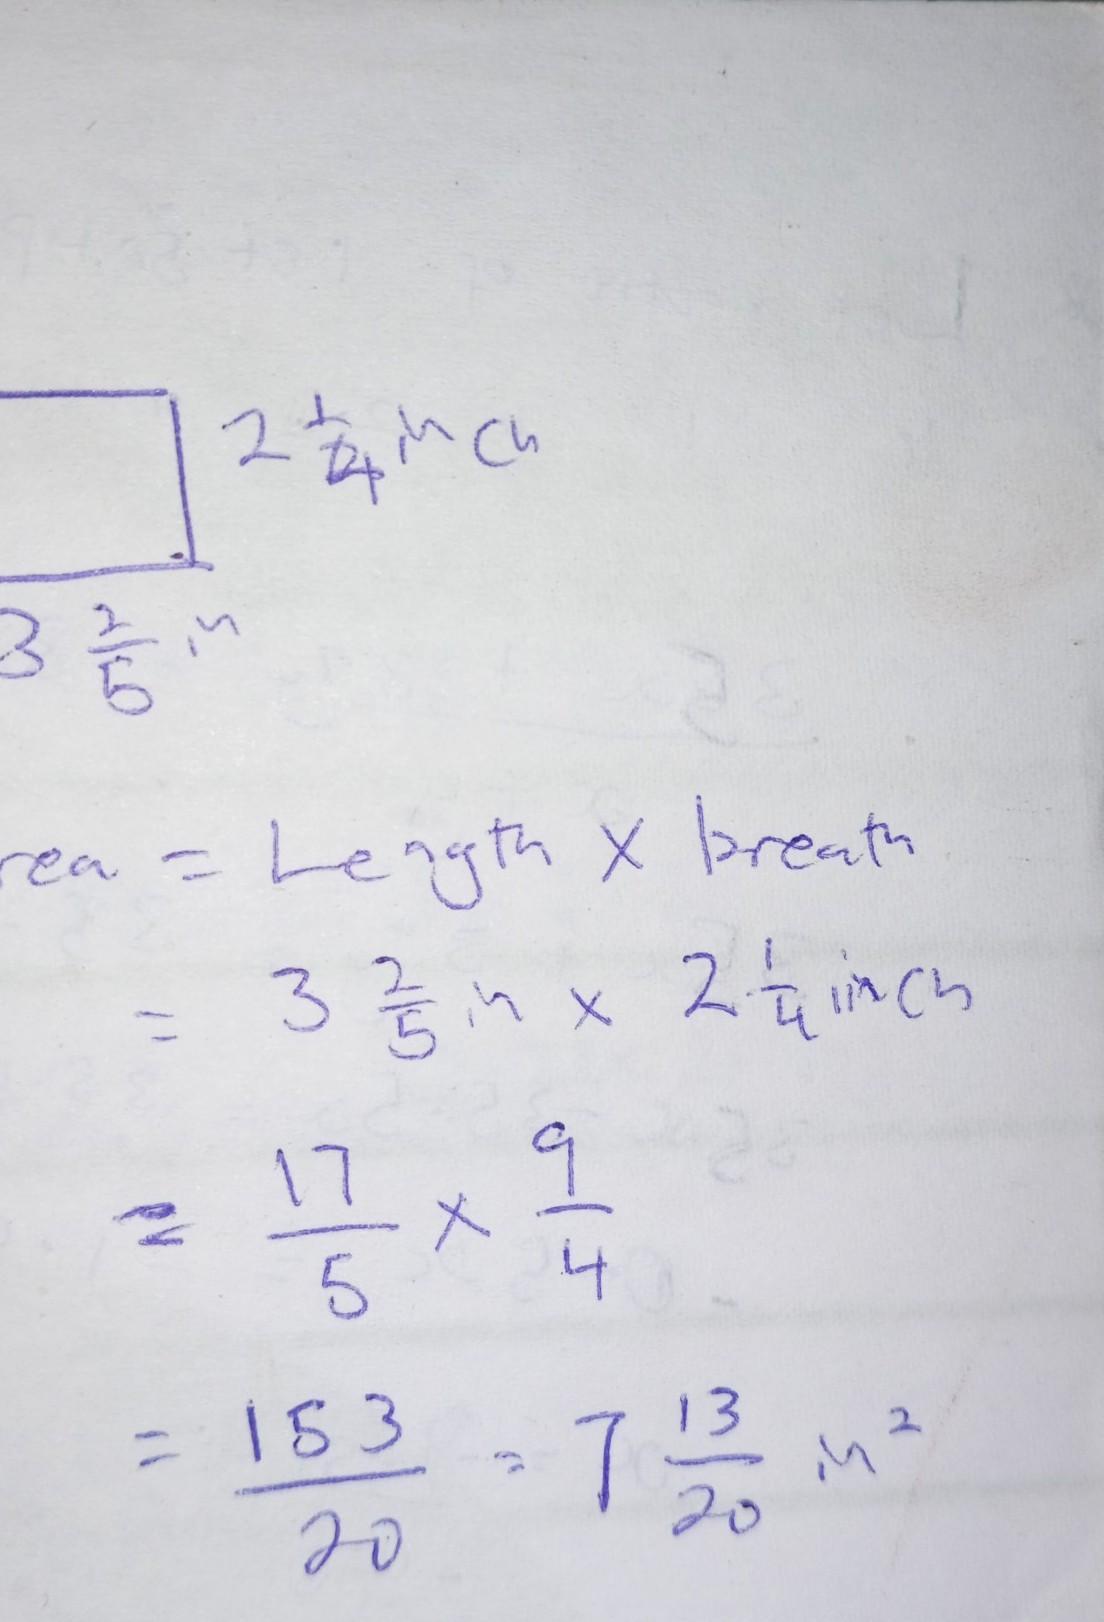 2 1/4 inch
3 2/5 in
rea = Length × breath
= 3 2/5 in × 2 1/4 inch
= 17/5 × 9/4
= 153/20 = 7 13/20 in²